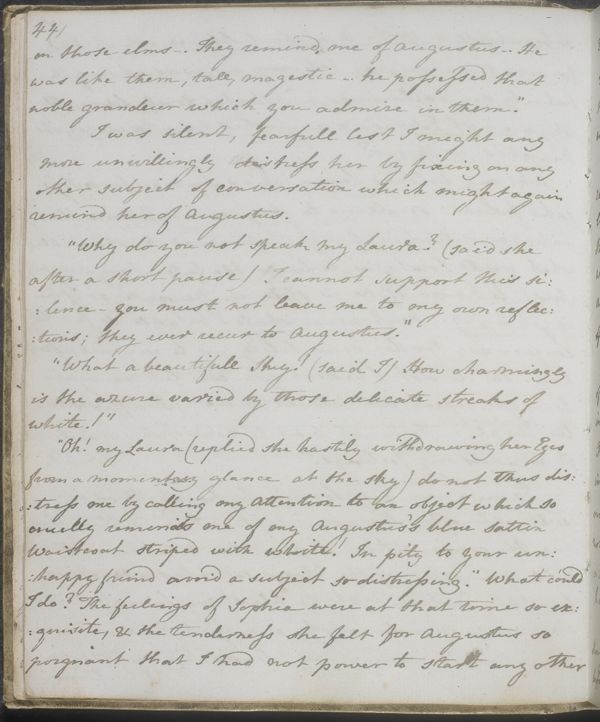 44/
on those elms -. They remind me of Augustus -. He
was like them, tall, magestic -. he possessed that
noble grandeur which you admire in them."
I was silent, fearfull lest I might any
more unwillingly distress her by fixing on any
other subject of conversation which might again
remind her of Augustus.
"Why do you not speak my Laura? (said she
after a short pause) I cannot support this si:
:lence - you must not leave me to my own reflec:
:tions; they ever recur to Augustus."
"What a beautifull Sky! (said I) How charmingly
is the azure varied by those delicate streaks of
white!"
"Oh! my Laura (replied she hastily withdrawing her Eyes
from a momentary glance at the sky) do not thus dis:
:tress me by calling my Attention to an object which so
cruelly reminds me of my Augustus's blue sattin
Waistcoat striped with white! In pity to your un:
:happy freind avoid a subject so distressing." What could
I do? The feelings of Sophia were at that time so ex:
:quisite, & the tenderness she felt for Augustus so
poignant that I had not power to start any other